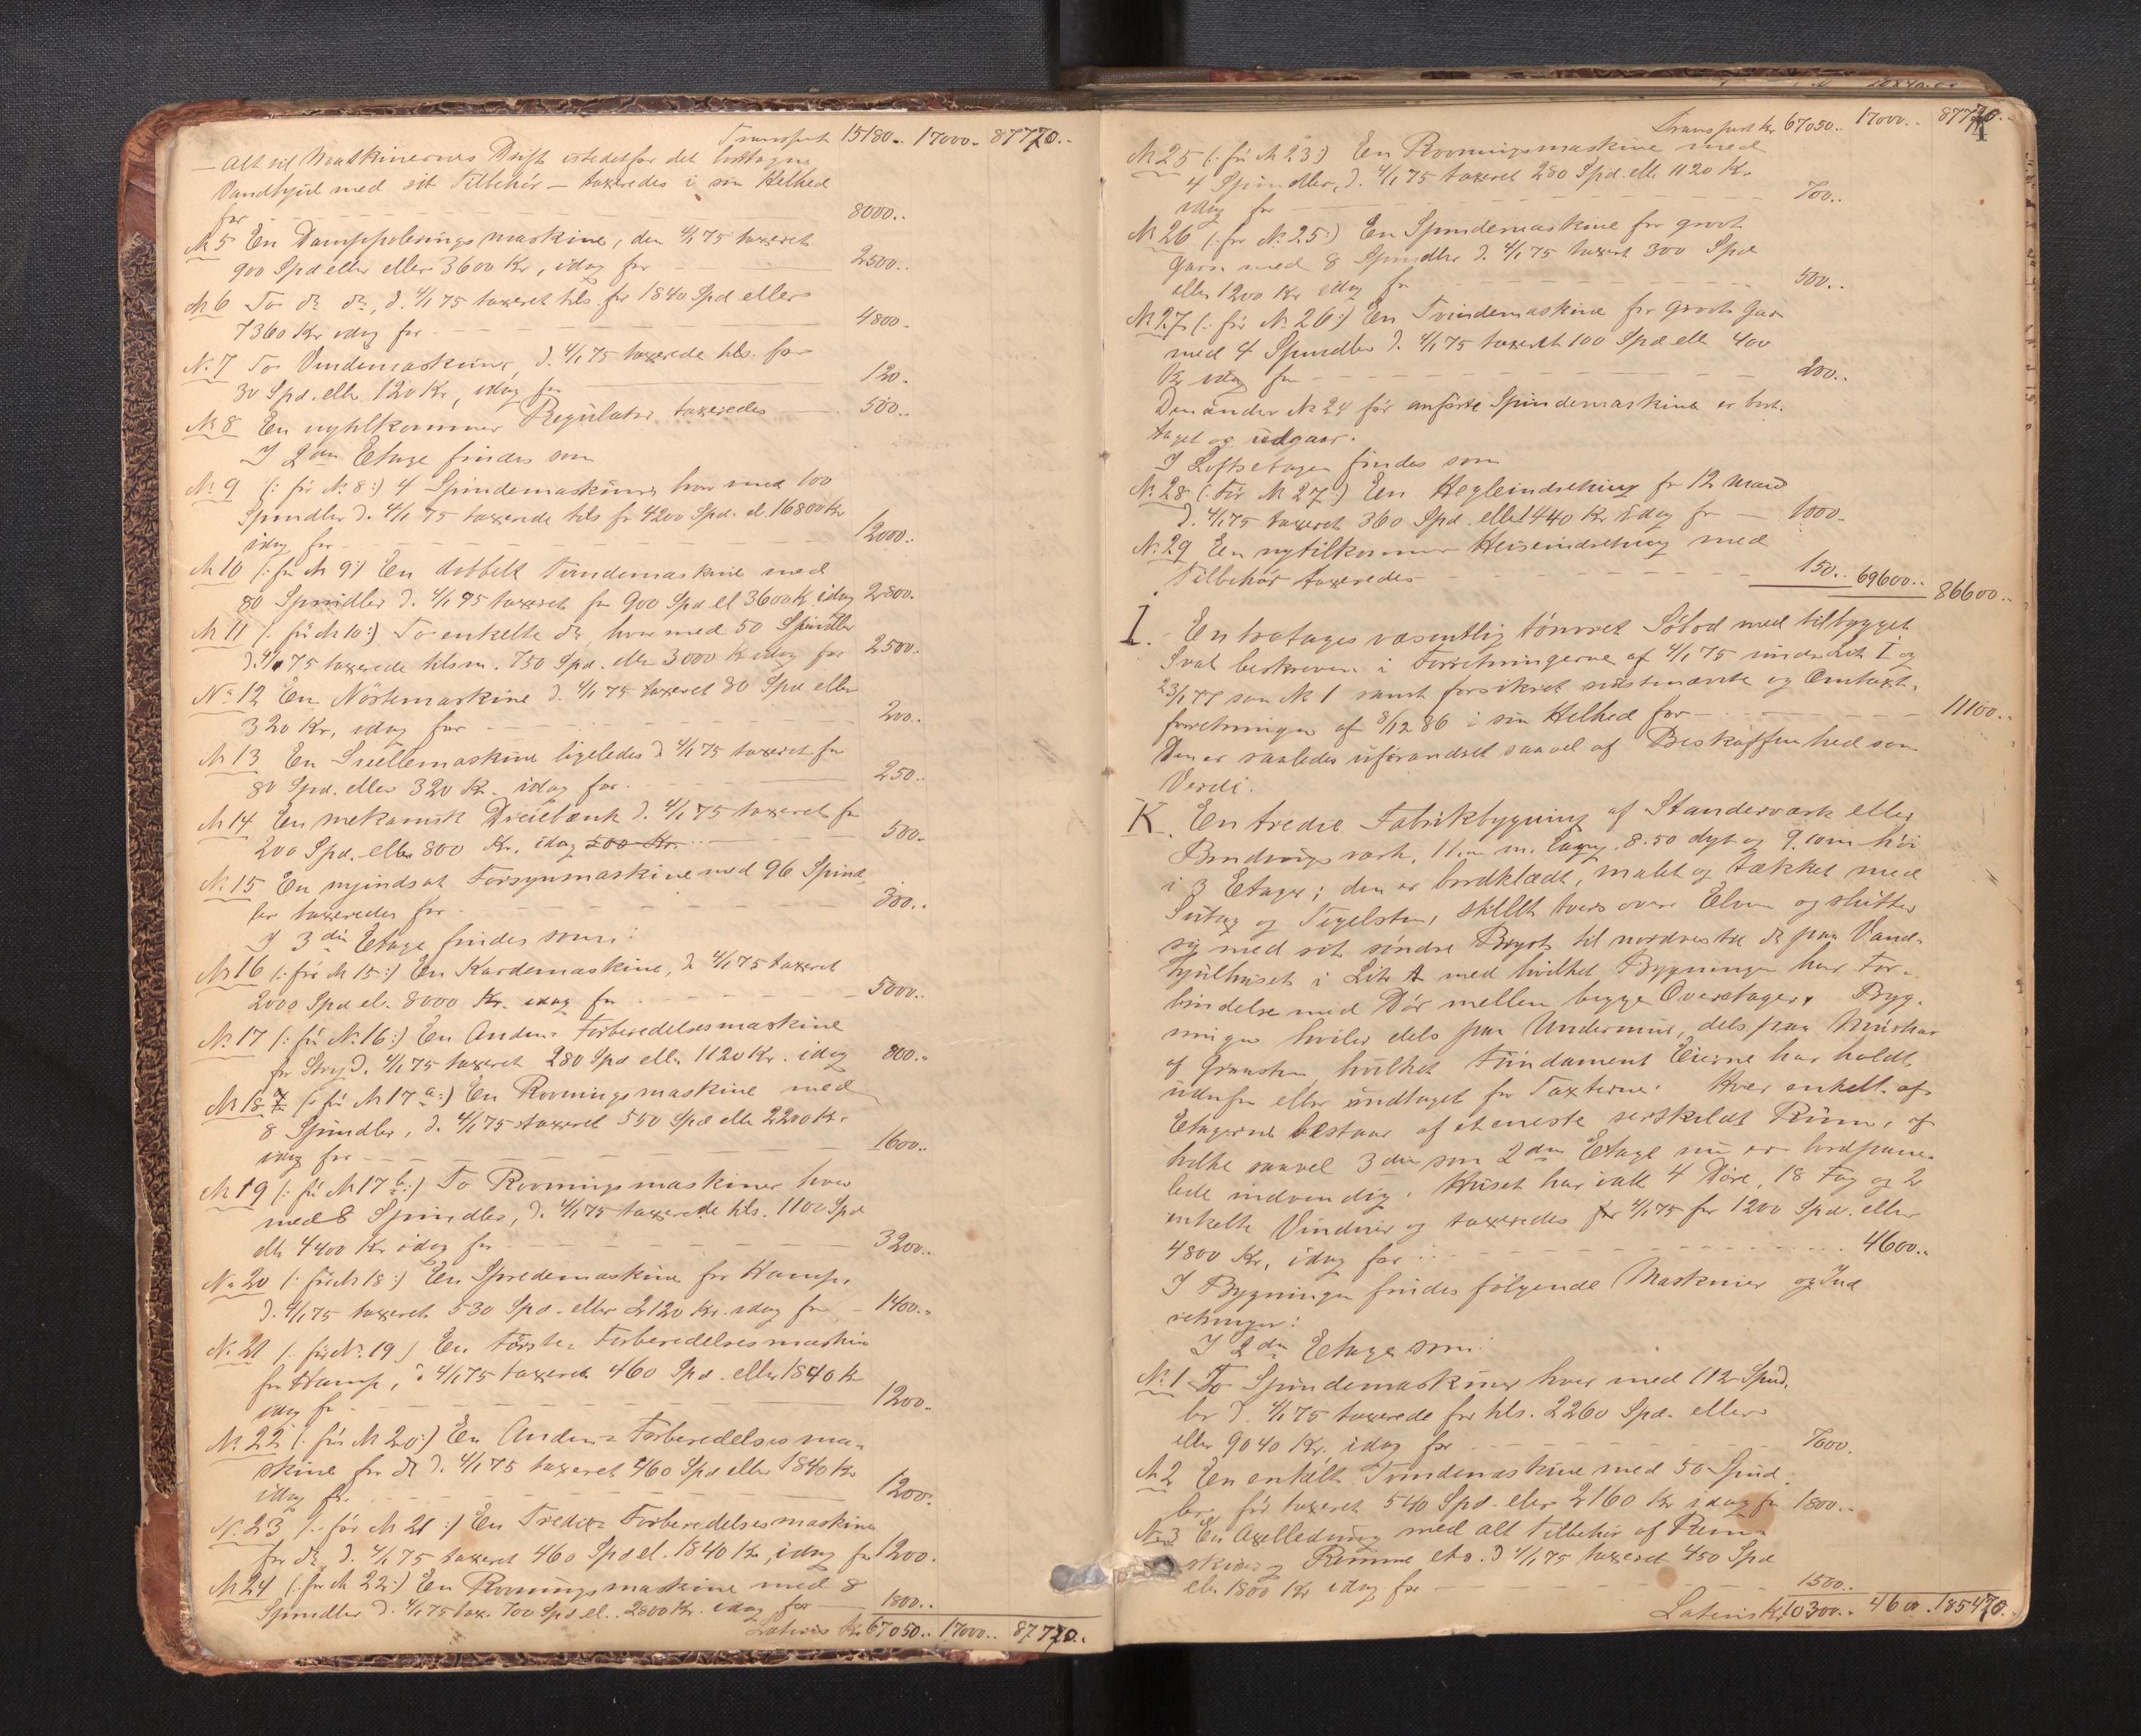 Transport 15180.. 17000.. 87770..
— alt til Maskinernes Drift istedetfor det borttagne
Vandhjul med sit Tilbehör — taxeredes i sin Helhed
for 8000..
№ 5 En Damppolerings maskine, den 4/1 75 taxeret
900 Spd eller eller 3600 Kr, idag for 2500..
№ 6 To do do, d. 4/1 75 taxeret tils. for 1840 Spd eller
7360 Kr idag for 4800.
№ 7 To Vindemaskiner, d. 4/1 75 taxerede tils. for
30 Spd. eller 120 Kr, idag for 120.
№ 8 En nytilkommen Regulator taxeredes 500..
I 2den Etage findes som
№ 9 (: för № 8:) 4 Spindemaskiner hver med 100
Spindler d. 4/1 75 taxerede tils for 4200 Spd. el. 16800 Kr
idag for 12000..
№ 10 (: för № 9:) En dobbelt Tvindemaskine med
80 Spindler d. 4/1 75 taxeret for 900 Spd el 3600 K. idag 2800.
№ 11 (: för № 10:) To enkelte do, hver med 50 Spindler
d. 4/1 75 taxerede tilsm. 750 Spd. eller 3000 Kr idag for 2500.
№ 12 En Nöstemaskine d. 4/1 75 taxeret 80 Spd eller
320 Kr, idag for 200.
№ 13 En Snellemaskine ligeledes d 4/1 75 taxeret for
80 Spd. eller 320 Kr. idag for 250..
№ 14 En mekanisk Dreiebænk d. 4/1 75 taxeret for
200 Spd. eller 800 Kr. idag 500 Kr. 500.
№ 15 En nyindsat Forsynmaskine med 96 Spind
ler taxeredes for 300..
I 3die Etage findes som:
№ 16 (: för № 15:) En Kardemaskine, d 4/1 75 taxeret
2000 Spd el. 8000 Kr. idag for 5000..
№ 17 (: för № 16:) En Anden = Forberedelsesmaskine
for Stry d. 4/1 75 taxeret 280 Spd eller 1120 Kr. idag 800..
№ 18 (: för № 17 a:) En Rovnings maskine med
8 Spindler, d. 4/1 75 taxeret 550 Spd eller 2200 Kr.
idag for 1600..
№ 19 (: för № 17 b:) To Rovningsmaskiner hver
med 8 Spindler, d. 4/1 75 taxerede tils. 1100 Spd
elle 4400 Kr idag for 3200..
№ 20 (: för № 18:) En Spredemaskine for Hamp,
d. 4/1 75 taxeret 530 Spd. eller 2120 Kr. idag for 1400..
№ 21 (: för № 19) En Förste = Forberedelsesmaskine
for Hamp, d 4/1 75 taxeret 460 Spd. eller 1840 Kr
idag for 1200.
№ 22 (: för № 20:) En Anden = Forberedelsesma-
skine for do d. 4/1 75 taxeret 460 Spd eller 1840 Kr
idag for 1200.
№ 23 (: för № 21:) En Tredie = Forberedelsesmaskine
for do, d. 4/1 75 taxeret 460 Spd el. 1840 Kr, idag for 1200.
№ 24 (: för № 22:) En Rovningsmaskine med 8
Spindler d. 4/1 75 tax. 700 Spd. el. 2800 Kr. idag for 1800..
Lateris Kr 67050.. 17000.. 87770..
4
Transport Kr 67050.. 17000.. 87770..
№ 25 (: för № 23:) En Rovningsmaskine med
4 Spindler, d. 4/1 75 taxeret 280 Spd. elle 1120 Kr.
idag for 700..
№ 26 (: för № 25:) En Spindemaskine for grovt
Garn med 8 Spindler d. 4/1 75 taxeret 300 Spd
eller 1200 Kr idag for 500..
№ 27 (: för № 26:) En Tvindemaskine for grovt Garn
med 4 Spindler d. 4/1 75 taxeret 100 Spd elle 400
Kr idag for 200..
Den under № 24 för anförte Spindemaskine er bort-
taget og udgaar.
I Loftsetagen findes som
№ 28 (: för № 27:) En Hegleindretning for 12 Mand
d. 4/1 75 taxeret 360 Spd. eller 1440 Kr idag for 1000.
№ 29 En nytilkommen Heiseindretning med
Tilbehör taxeredes 150.. 69600.. 86600..
I. En treetages væsentlig tömret Söbod med tilbygget
Sval beskreven i Forretningerne af 4/1 75 under Litr I og
23/1 77 som № 1 samt forsikret sidstnævnte og Omtaxt-
forretningen af 8/12 86 i sin Helhed for 11100..
Den er saaledes uforandret saavel af Beskaffenhed som
Verdi.
K. En tredie Fabrikbygning af Standerværk eller
Bindingsværk, 11. m. lang, 8.50 dyb og 9.10 m höi
i 3 Etager; den er bordklædt, malet og tækket med
Sutag og Tegelsten, stillet tvers over Elven og slutter
sig med sit söndre Bryst til nordvestre do paa Vand-
hjulhuset i Litr A med hvilket Bygningen har For-
bindelse med Dör mellem begge Overetager. Byg-
ningen hviler dels paa Undermur, dels paa Murkar
af Graasten hvilket Fundament Eierne har holdt
udenfor eller undtaget for Taxterne. Hver enkelt af
Etagerne bestaar af et eneste serskildt Rum, af
hvilke saavel 3die som 2den Etage nu er bordpane-
lede indvendig. Huset har ialt 4 Döre, 18 Fag og 2
enkelte Vinduer og taxeredes 4/1 75 for 1200 Spd. eller
4800 Kr, idag for 4600..
I Bygningen findes fölgende Maskiner og Ind
retninger:
I 2den Etage som:
№ 1 To Spindemaskiner hver med 112 Spind-
ler d. 4/1 75 taxerede for tils. 2260 Spd. eller
eller 9040 Kr. idag for 7000.
№ 2 En enkelt Tvindemaskine med 50 Spind-
ler för taxeret 540 Spd. eler 2160 Kr idag for 1800..
№ 3 En Axelledning med alt Tilbehör af Rem-
skiver og Remme etc. d 4/1 75 taxeret 450 Spd
eler 1800 Kr idag for 1500..
Lateris Kr 10300.. 4600. 185470.